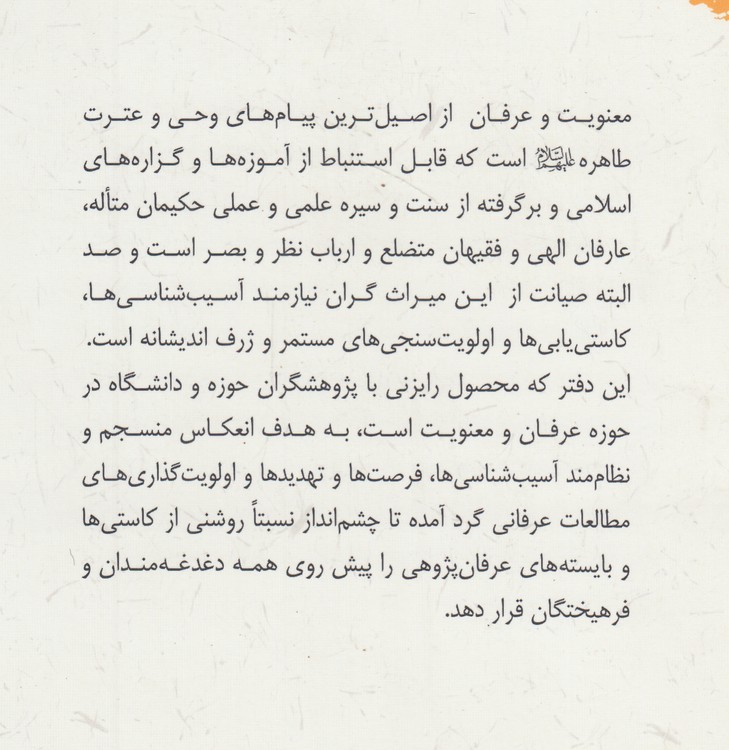 معنویت و عرفان از اصیل‌ترین پیام‌های وحی و عترت
طاهره علیهم‌السلام است که قابل استنباط از آموزه‌ها و گزاره‌های
اسلامی و برگرفته از سنت و سیره علمی و عملی حکیمان متأله،
عارفان الهی و فقیهان متضلع و ارباب نظر و بصر است و صد
البته صیانت از این میراث گران نیازمند آسیب‌شناسی‌ها،
کاستی‌یابی‌ها و اولویت‌سنجی‌های مستمر و ژرف اندیشانه است.
این دفتر که محصول رایزنی با پژوهشگران حوزه و دانشگاه در
حوزه عرفان و معنویت است، به هدف انعکاس منسجم و
نظام‌مند آسیب‌شناسی‌ها، فرصت‌ها و تهدیدها و اولویت‌گذاری‌های
مطالعات عرفانی گرد آمده تا چشم‌انداز نسبتاً روشنی از کاستی‌ها
و بایسته‌های عرفان‌پژوهی را پیش روی همه دغدغه‌مندان و
فرهیختگان قرار دهد.